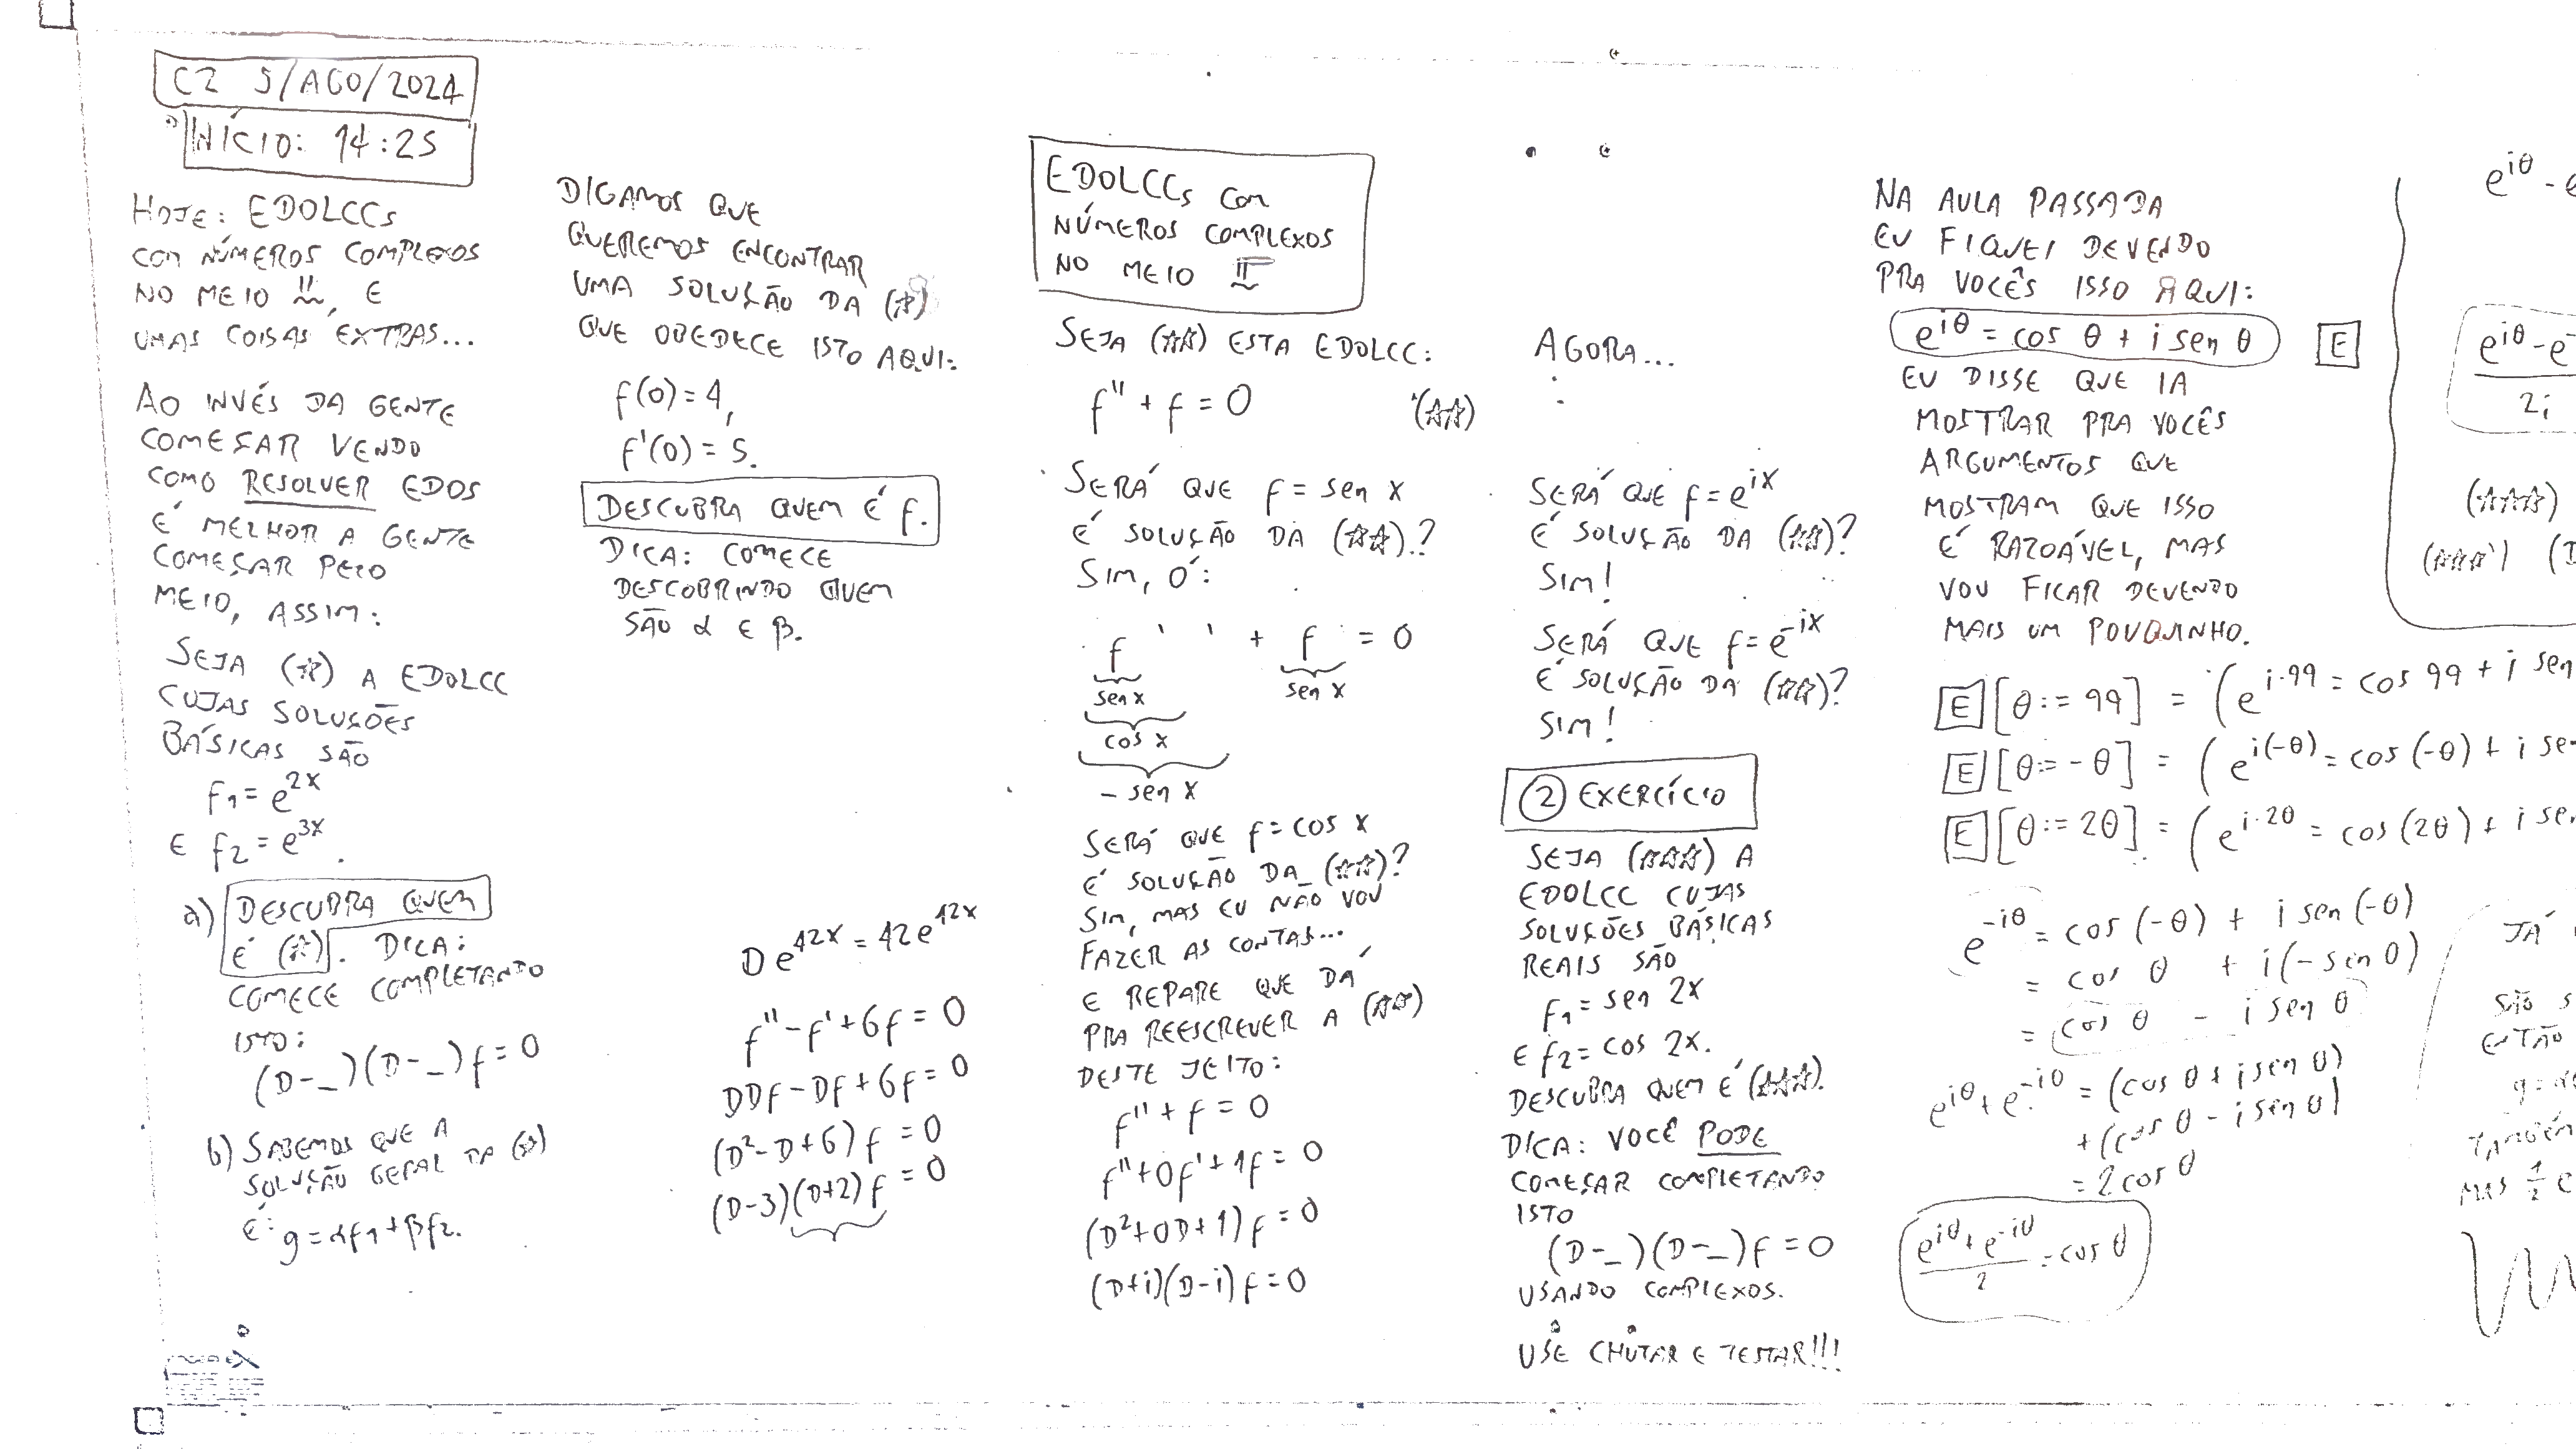 C2 5/AGO/2024
INÍCIO: 14:25
HOJE: EDOLCCs
COM NÚMEROS COMPLEXOS
NO MEIO !!, E
UMAS COISAS EXTRAS...
AO INVÉS DA GENTE
COMEÇAR VENDO
COMO RESOLVER EDOS
É MELHOR A GENTE
COMEÇAR PELO
MEIO, ASSIM:
SEJA (☆) A EDOLCC
CUJAS SOLUÇÕES
BÁSICAS SÃO
f₁ = e^{2x}
E f₂ = e^{3x}.
a) DESCUBRA QUEM
É (☆). DICA:
COMECE COMPLETANDO
ISTO:
(D-_)(D-_)f = 0
b) SABEMOS QUE A
SOLUÇÃO GERAL DA (☆)
É: g = αf₁ + βf₂.
DIGAMOS QUE
QUEREMOS ENCONTRAR
UMA SOLUÇÃO DA (☆)
QUE OBEDECE ISTO AQUI:
f(0) = 4,
f'(0) = 5.
DESCUBRA QUEM É f.
DICA: COMECE
DESCOBRINDO QUEM
SÃO α E β.
D e^{42x} = 42e^{42x}
f'' - f' + 6f = 0
DDf - Df + 6f = 0
(D² - D + 6)f = 0
(D-3)(D+2)f = 0
EDOLCCs COM
NÚMEROS COMPLEXOS
NO MEIO !!
SEJA (☆☆) ESTA EDOLCC:
f'' + f = 0 (☆☆)
SERÁ QUE f = sen x
É SOLUÇÃO DA (☆☆)?
SIM, Ó:
f ' ' + f = 0
sen x sen x
cos x
- sen x
SERÁ QUE f = cos x
É SOLUÇÃO DA (☆☆)?
SIM, MAS EU NÃO VOU
FAZER AS CONTAS...
E REPARE QUE DÁ
PRA REESCREVER A (☆☆)
DESTE JEITO:
f'' + f = 0
f'' + 0f' + 1f = 0
(D² + 0D + 1)f = 0
(D+i)(D-i)f = 0
AGORA...
SERÁ QUE f = e^{ix}
É SOLUÇÃO DA (☆☆)?
SIM!
SERÁ QUE f = e^{-ix}
É SOLUÇÃO DA (☆☆)?
SIM!
② EXERCÍCIO
SEJA (☆☆☆) A
EDOLCC CUJAS
SOLUÇÕES BÁSICAS
REAIS SÃO
f₁ = sen 2x
E f₂ = cos 2x.
DESCUBRA QUEM É (☆☆☆).
DICA: VOCÊ PODE
COMEÇAR COMPLETANDO
ISTO
(D-_)(D-_)f = 0
USANDO COMPLEXOS.
USE CHUTAR E TESTAR!!!
NA AULA PASSADA
EU FIQUEI DEVENDO
PRA VOCÊS ISSO AQUI:
e^{iθ} = cos θ + i sen θ [E]
EU DISSE QUE IA
MOSTRAR PRA VOCÊS
ARGUMENTOS QUE
MOSTRAM QUE ISSO
É RAZOÁVEL, MAS
VOU FICAR DEVENDO
MAIS UM POUQUINHO.
[E] [θ := 99] = (e^{i·99} = cos 99 + i sen
[E] [θ := -θ] = (e^{i(-θ)} = cos (-θ) + i se
[E] [θ := 2θ] = (e^{i·2θ} = cos (2θ) + i se
e^{-iθ} = cos (-θ) + i sen (-θ)
= cos θ + i(-sen θ)
= cos θ - i sen θ
e^{iθ} + e^{-iθ} = (cos θ + i sen θ)
+ (cos θ - i sen θ)
= 2 cos θ
(e^{iθ} + e^{-iθ})/2 = cos θ
e^{iθ} - e
(e^{iθ} - e^{-})/2i
(☆☆☆)
(☆☆☆')
JÁ
SÃO S
ENTÃO
TAMBÉM
MAS 1/2 e